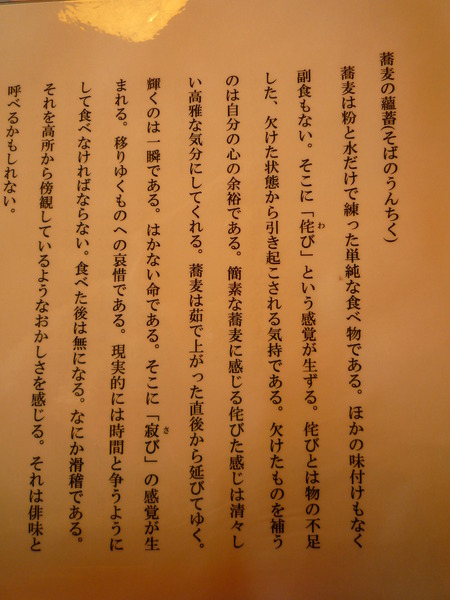 蕎麦の蘊蓄(そばのうんちく)
蕎麦は粉と水だけで練った単純な食べ物である。ほかの味付けもなく
副食もない。そこに「侘び」という感覚が生ずる。侘びとは物の不足
した、欠けた状態から引き起こされる気持である。欠けたものを補う
のは自分の心の余裕である。簡素な蕎麦に感じる侘びた感じは清々し
い高雅な気分にしてくれる。蕎麦は茹で上がった直後から延びてゆく。
輝くのは一瞬である。はかない命である。そこに「寂び」の感覚が生
まれる。移りゆくものへの哀惜である。現実的には時間と争うように
して食べなければならない。食べた後は無になる。なにか滑稽である。
それを高所から傍観しているようなおかしさを感じる。それは俳味と
呼べるかもしれない。